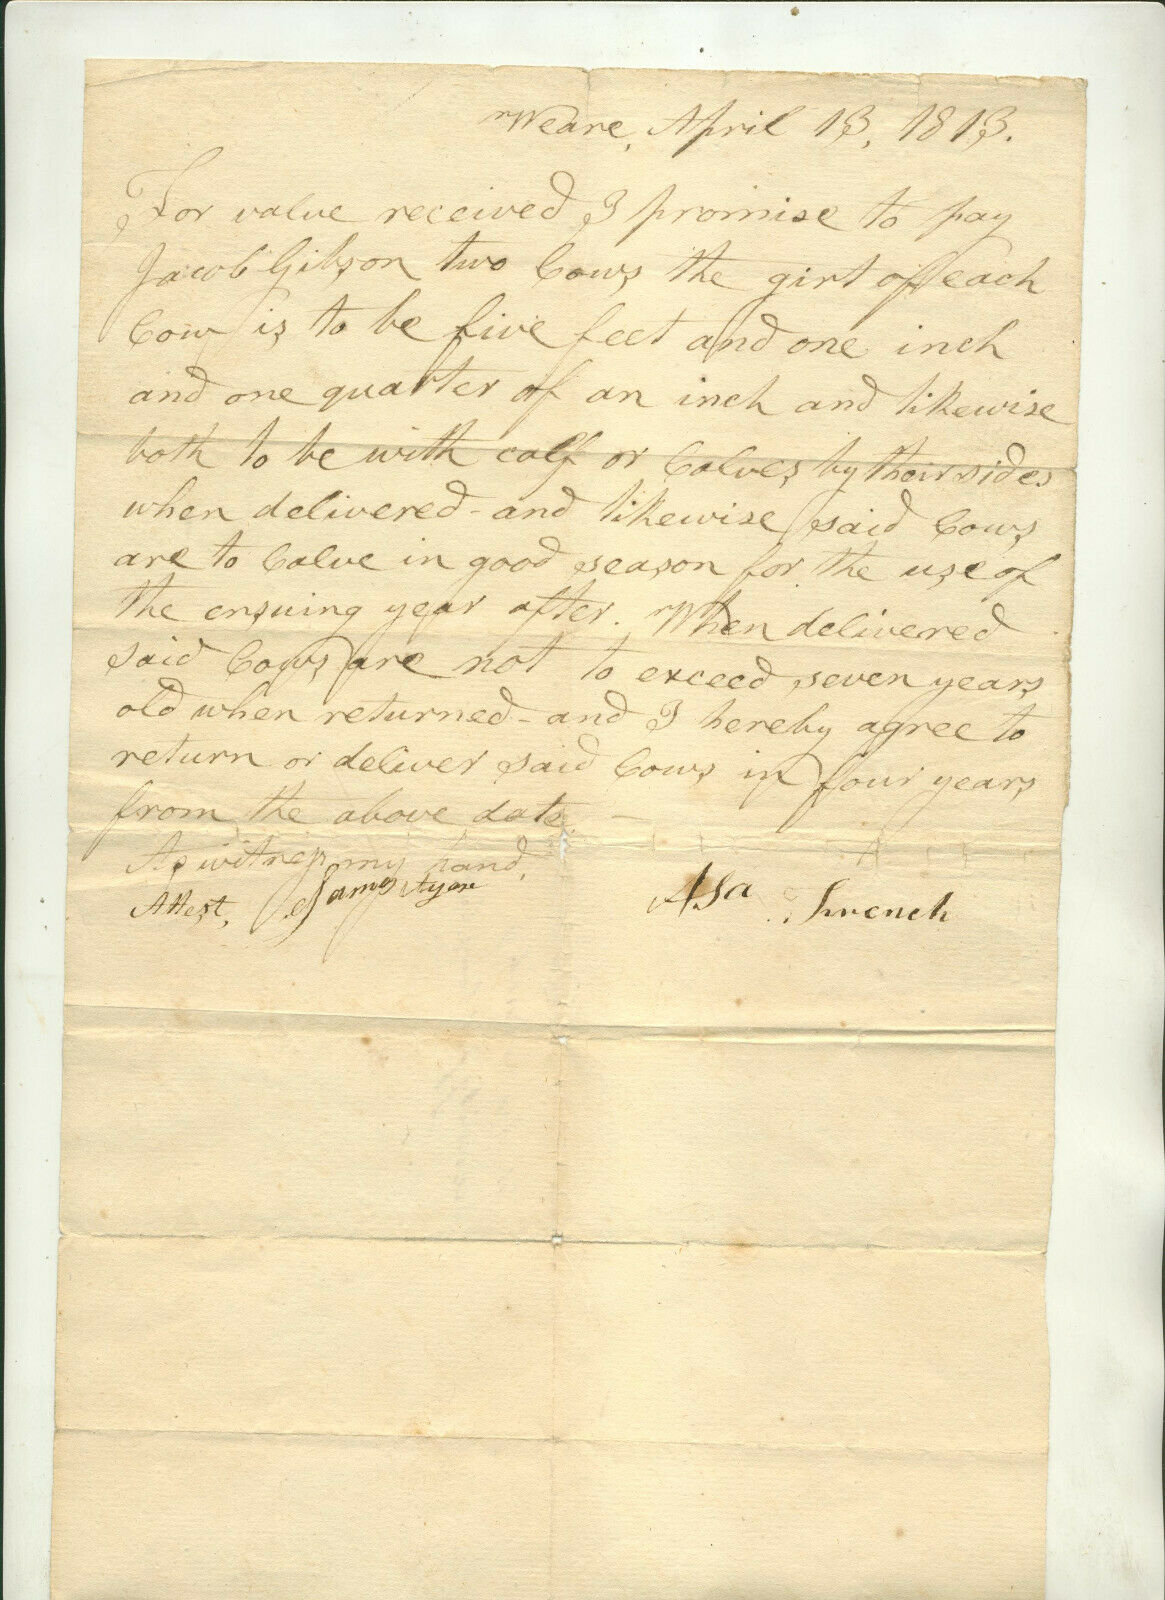 Weare, April 13, 1813.
For value received I promise to pay
Jacob Gibson two Cows the girt of each
Cow is to be five feet and one inch
and one quarter of an inch and likewise
both to be with calf or Calves by their sides
when delivered - and likewise said Cows
are to Calve in good season for the use of
the ensuing year after. When delivered
said Cows are not to exceed seven years
old when returned - and I hereby agree to
return or deliver said Cows in four years
from the above date —
As witness my hand,
Attest, James
Asa French